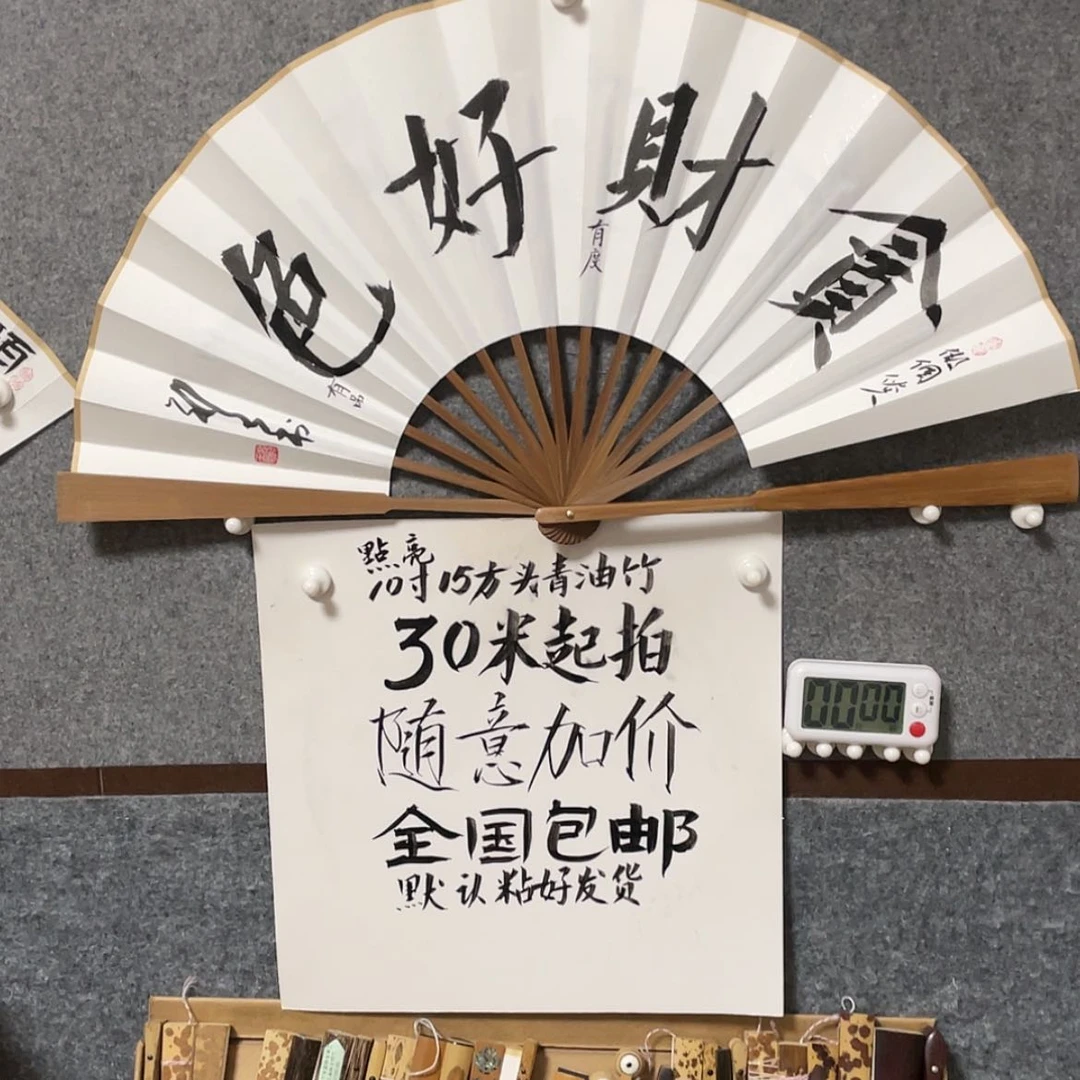 貪財好色
有度
有品
點亮
10寸15方头青油竹
30米起拍
随意加价
全国包邮
默认粘好发货
00:00